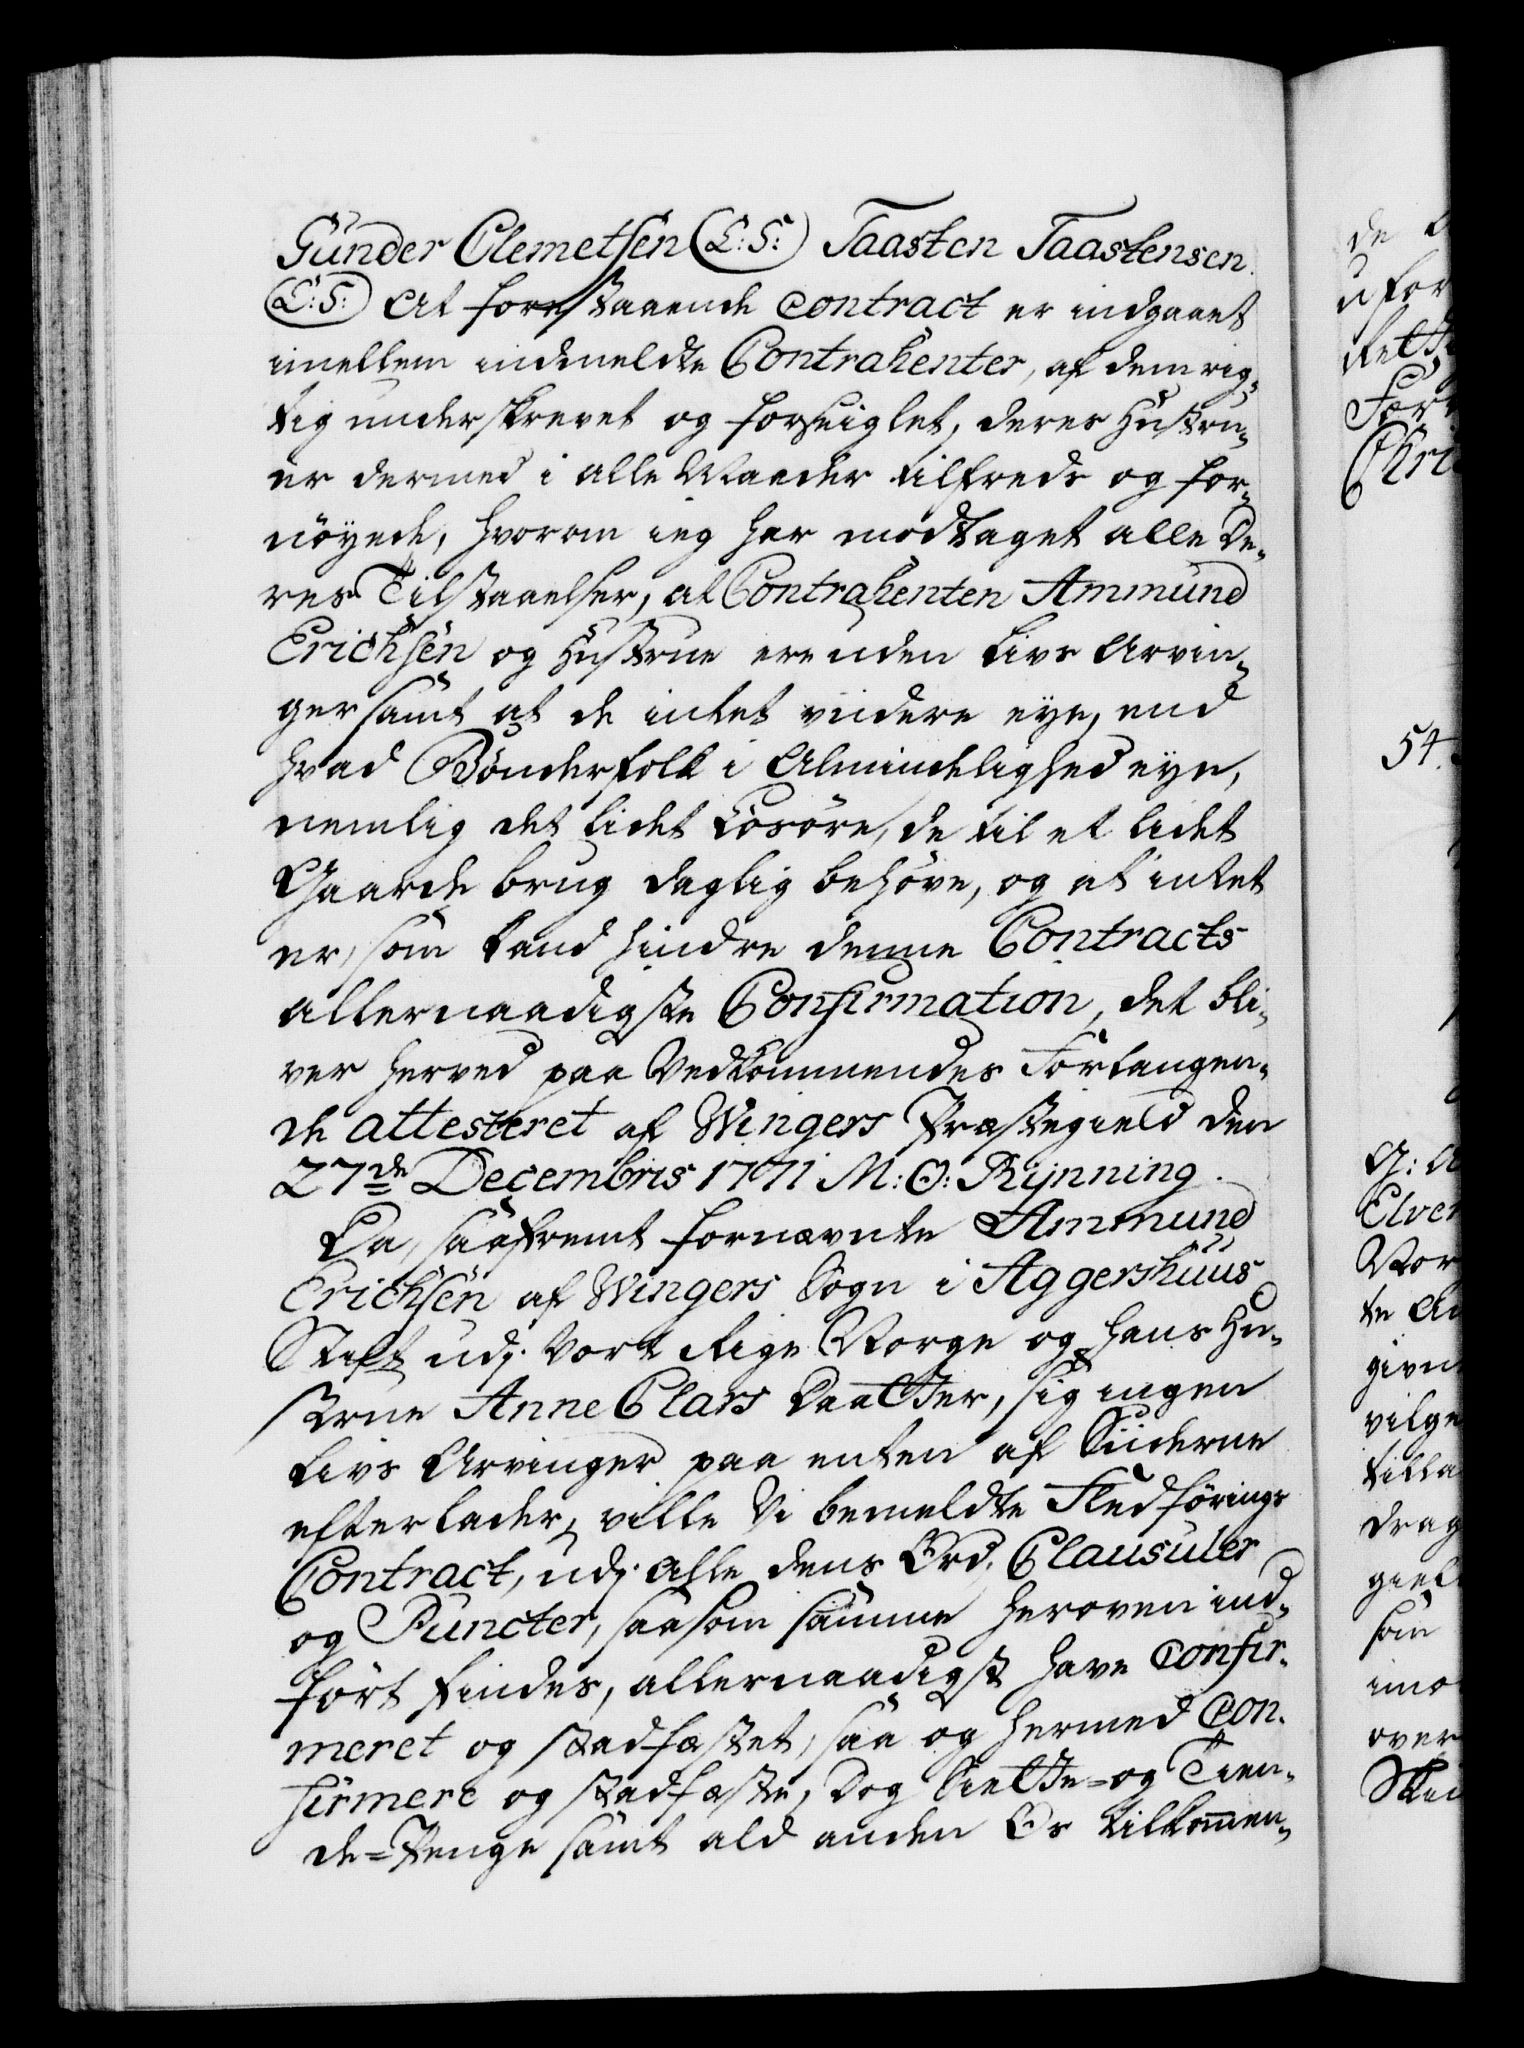 Gunder Clemetsen (L:S:) Taasten Taastensen.
(L:S:) At forestaaende Contract er indgaaet
imellem indmeldte Contrahenter, af dem rig¬
tig underskrevet og forseiglet, deres Hustru¬
er dermed i alle Maader tilfreds og for¬
nöyede, hvorom ieg har modtaget alle De¬
res Tilstaaelser, at Contrahenten Ammund
Erichsen og Hustrue ere uden Livs Arvin¬
ger samt at de intet viidere eye, end
hvad Bönderfolk i Almindelighed eye,
nemlig det lidet Lösöre, de til et lidet
Gaarde brug daglig behöve, og at intet
er, som kand hindre denne Contracts
allernaadigste Confirmation, det bli¬
ver herved paa Vedkommendes Forlangen¬
de attesteret af Wingers Præstegield den
27de Decembris 1771 M: O: Rÿnning.
Da, saafremt fornævnte Ammund
Erichsen af Wingers Sogn i Aggershuus
Stift udj Vort Rige Norge og hans Hu¬
strue Anne Clars Daatter, sig ingen
Livs Arvinger paa enten af Siiderne
efterlader, ville Vi bemeldte Fledförings
Contract, udj alle dens Ord, Clausuler
og Puncter, saasom samme heroven ind¬
fört findes, allernaadigst have confir¬
meret og stadfæstet, saa og hermed Con¬
firmere og stadfæste, Dog Siette- og Tien¬
de-Penge samt ald anden Os tilkommen¬
54.